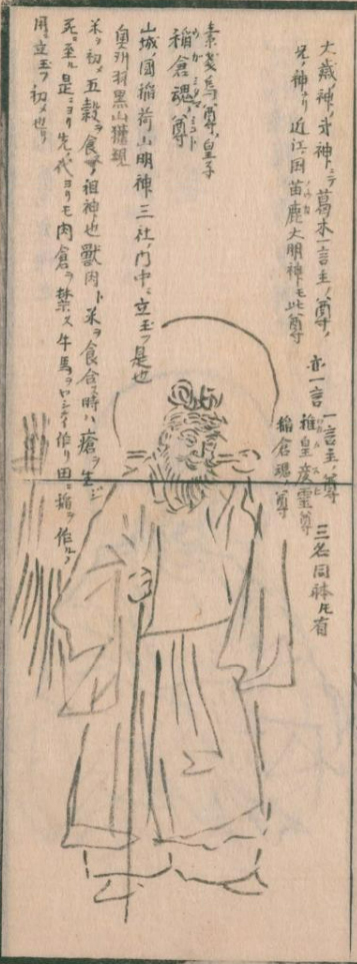 大歳神ノ弟神ニテ葛木一言主ノ尊ノ
兄ノ神ナリ近江ノ国苗鹿大明神トモ此尊
亦一言
一言主ノ尊
稚皇産霊尊
稲倉魂ノ尊
三名同躰ㇳモ有
素戔烏ノ尊ノ皇子
稲倉魂ノ尊
山城ノ国稲荷山明神三社ノ内中ニ立玉フ是也
奥州羽黒山権現
米ヲ初メ五穀ヲ食スノ祖神也獣肉ト米ヲ食合ス時ハ瘡ヲ生ジ
死ニ至ル是ニヨリ先代ヨリモ肉倉ヲ禁ス牛馬ヲ作リ田ニ稲ヲ作ルノ
用ニ立玉フ初メ也